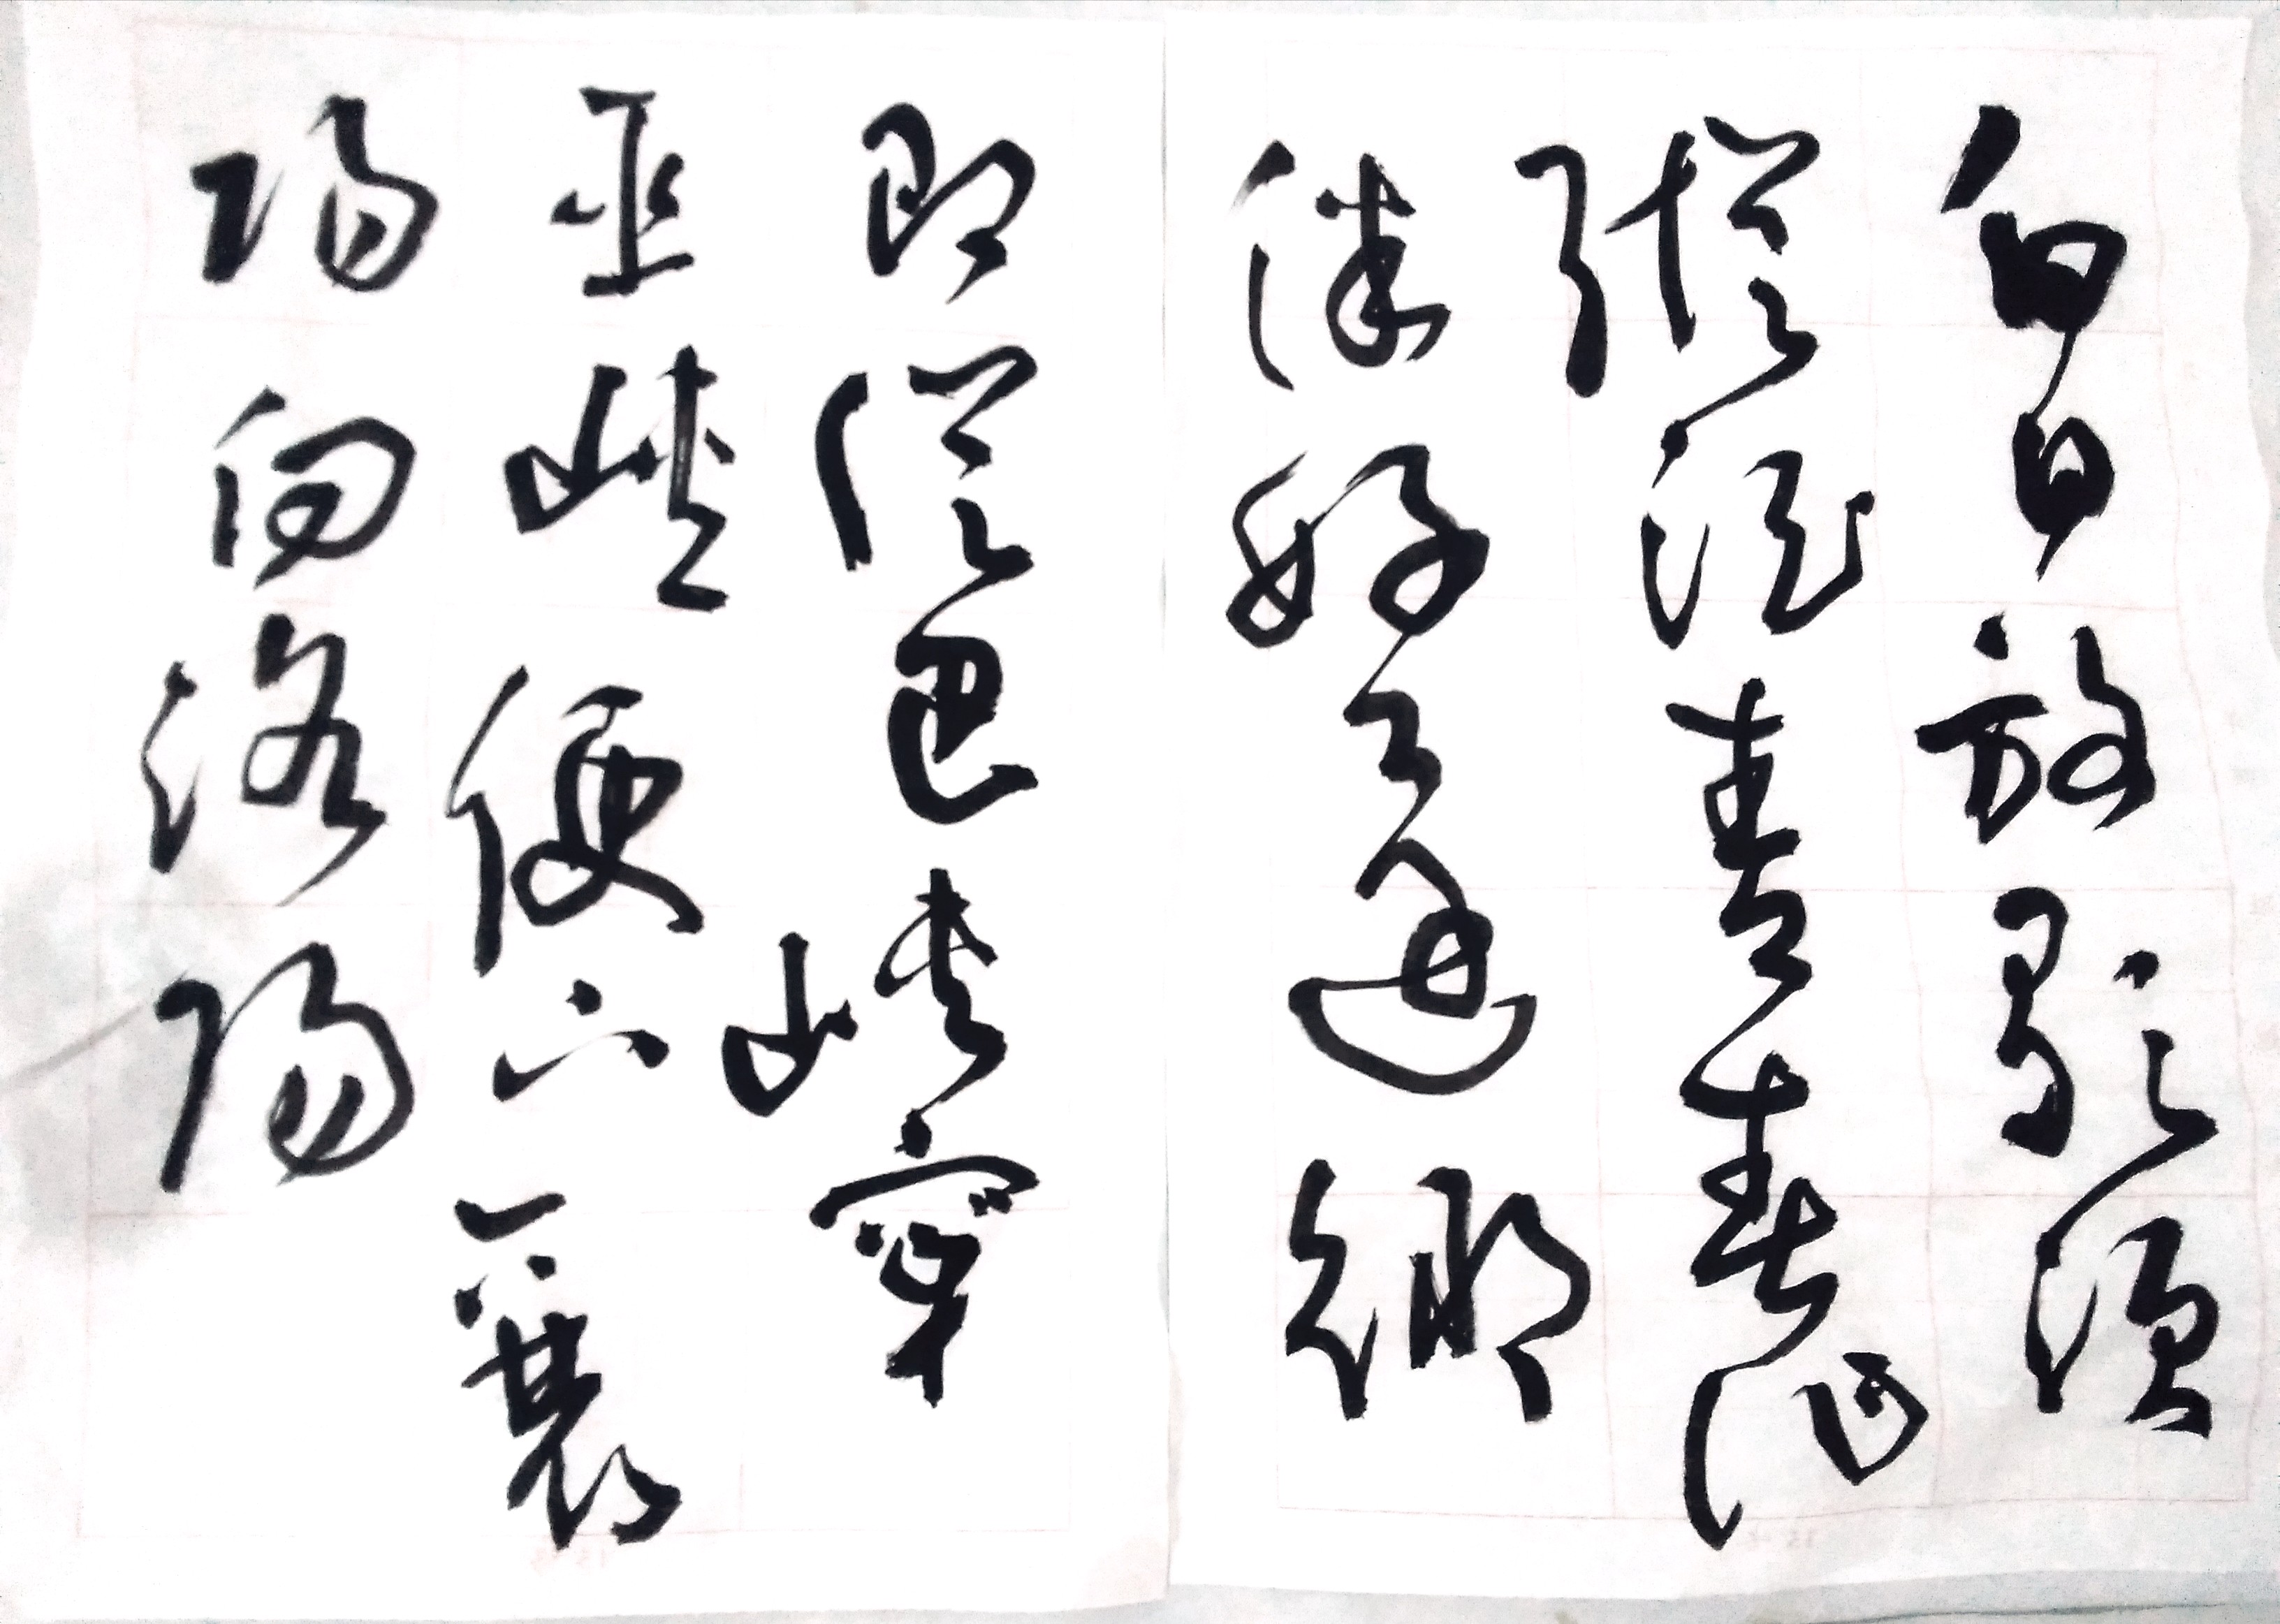 白日放歌須
縱酒青春作
伴好還鄉
即從巴峽穿
巫峽便下襄
陽向洛陽